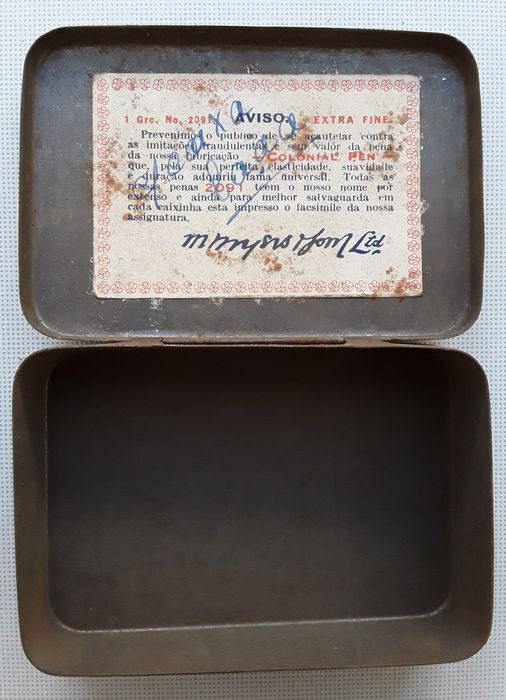 1 Gro. No. 2091 AVISO. EXTRA FINE
Prevenimos o publico de se acautelar contra
as imitações fraudulentas e sem valor da pena
da nossa fabricação — "COLONIAL PEN" —
que, pela sua perfeita elasticidade, suavidade
e duração adquiriu fama universal. Todas as
nossas penas 2091 teem o nosso nome por
extenso e ainda para melhor salvaguarda em
cada caixinha esta impresso o facsimile da nossa
assignatura.